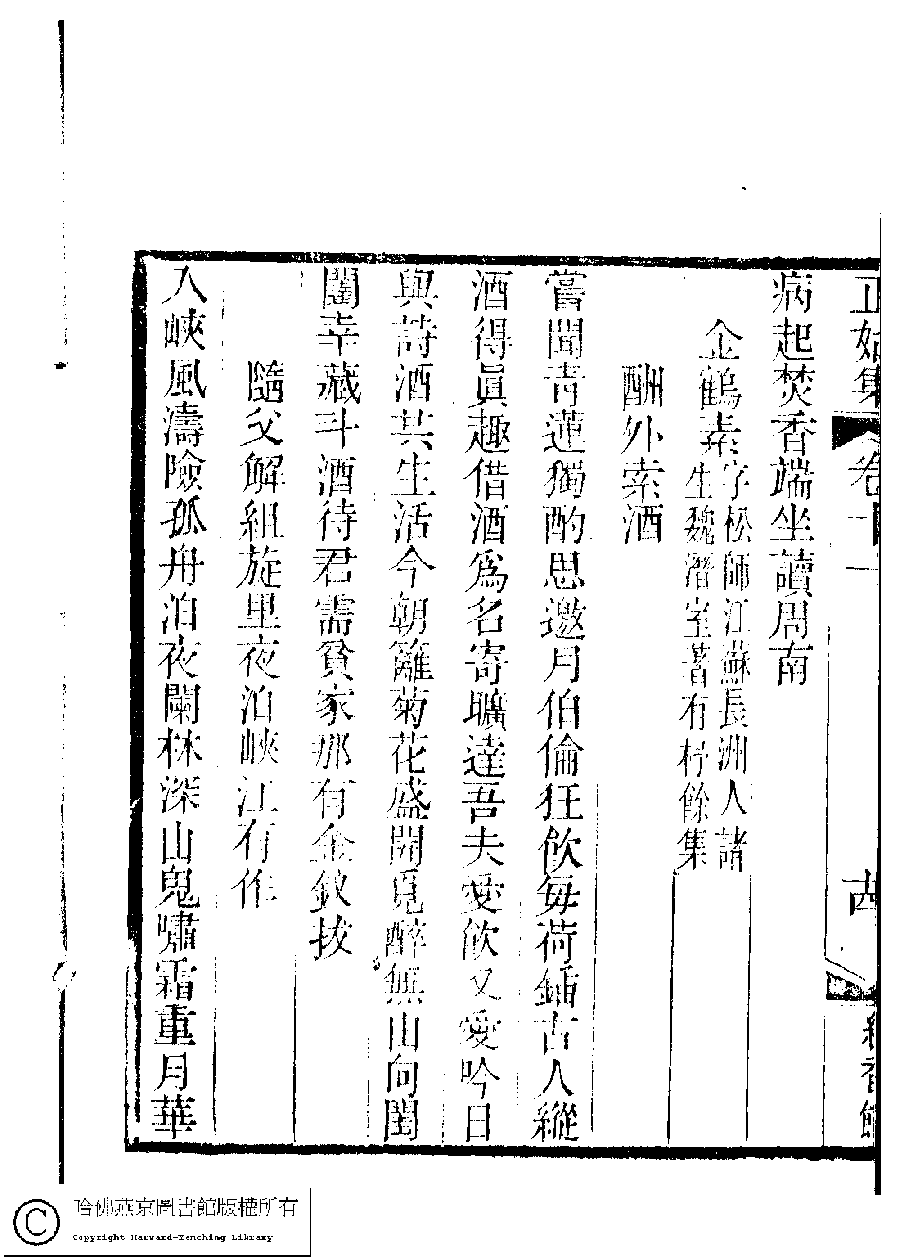 正始集 卷十一 十四 紅香館
病起焚香端坐讀周南
金鶴素字松師江蘇長洲人諸
生魏潛室著有杼餘集
酬外索酒
嘗聞青蓮獨酌思邀月伯倫狂飲每荷鍤古人縱
酒得眞趣借酒爲名寄曠達吾夫愛飲又愛吟日
與詩酒共生活今朝籬菊花盛開覓醉無由向閨
闥幸藏斗酒待君需貧家那有金釵拔
隨父解組旋里夜泊峽江有作
入峽風濤險孤舟泊夜闌林深山鬼嘯霜重月華
哈佛燕京圖書館版權所有
Copyright Harvard-Yenching Library